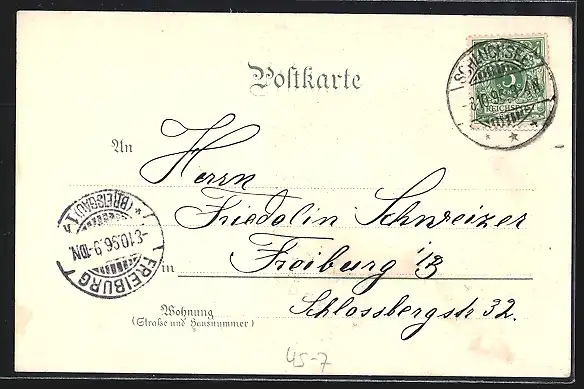 Postkarte
SCHLUCHSEE
-8.10.96
5
REICHSPOST
An
Herrn
Friedolin Schweizer
in Freiburg i/B
Wohnung
(Straße und Hausnummer)
Schlossbergstr 32.
*(BREISGAU)1*
-8.10.96.9-10N.
FREIBURG
45-7